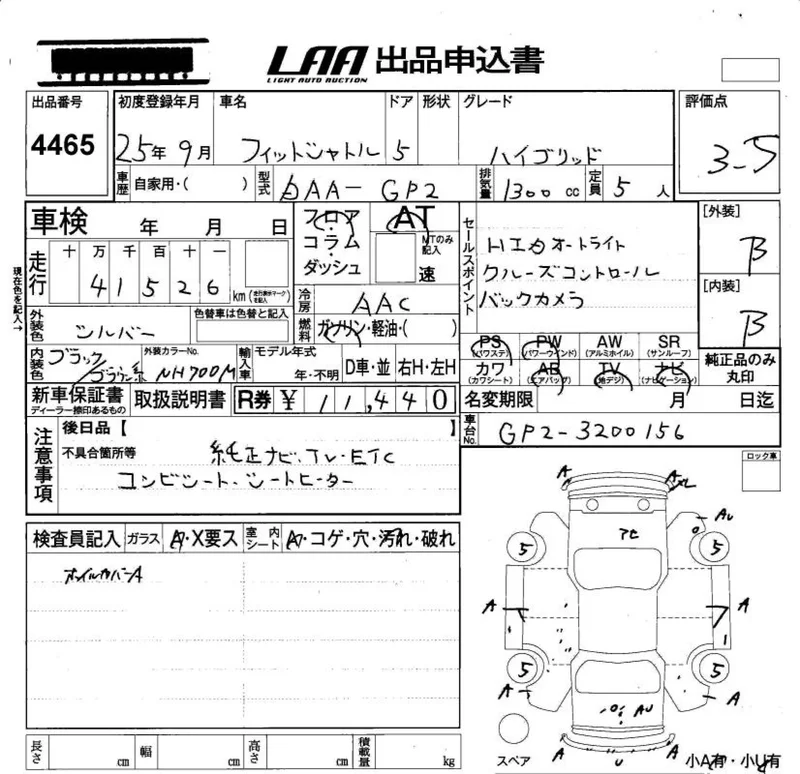 LAA 出品申込書
LIGHT AUTO AUCTION
出品番号 初度登録年月 車名 ドア 形状 グレード 評価点
4465 25年 9月 フィットシャトル 5 ハイブリッド 3.5
車歴 自家用・( ) 型式 DAA-GP2 排気量 1300 cc 定員 5 人
車検 年 月 日 フロア AT
コラム・ダッシュ MTのみ記入 速
現在色を記入→
走行 十 万 千 百 十 一
4 1 5 2 6 km (走行表示マークを記入)
冷房 AAC
セールスポイント
オートライト
クルーズコントロール
バックカメラ
[外装] B
[内装] B
外装色 シルバー 色替車は色替と記入 燃料 ガソリン・軽油・( )
内装色 ブラック ブラウン系 外装カラーNo. NH700M 輸入車 モデル年式 年・不明 D車・並 右H・左H
PS (パワステ) PW (パワーウインド) AW (アルミホイル) SR (サンルーフ)
カワ (カワシート) AB (エアバッグ) TV (地デジ) ナビ (ナビゲーション)
純正品のみ丸印
新車保証書 ディーラー捺印あるもの 取扱説明書 R券 ¥ 11,440 名変期限 月 日迄
車台No. GP2-3200156
注意事項 後日品【 】
不具合箇所等 純正ナビ、TV・ETC
コンビシート、シートヒーター
ロック車
検査員記入 ガラス A・X要ス 室内シート A・コゲ・穴・汚れ・破れ
ホイルカバーA
A A
AU
アセ
5 5
A A
5 5
A A
AU
A U A
スペア 小A有・小U有
長さ cm 幅 cm 高さ cm 積載量 kg